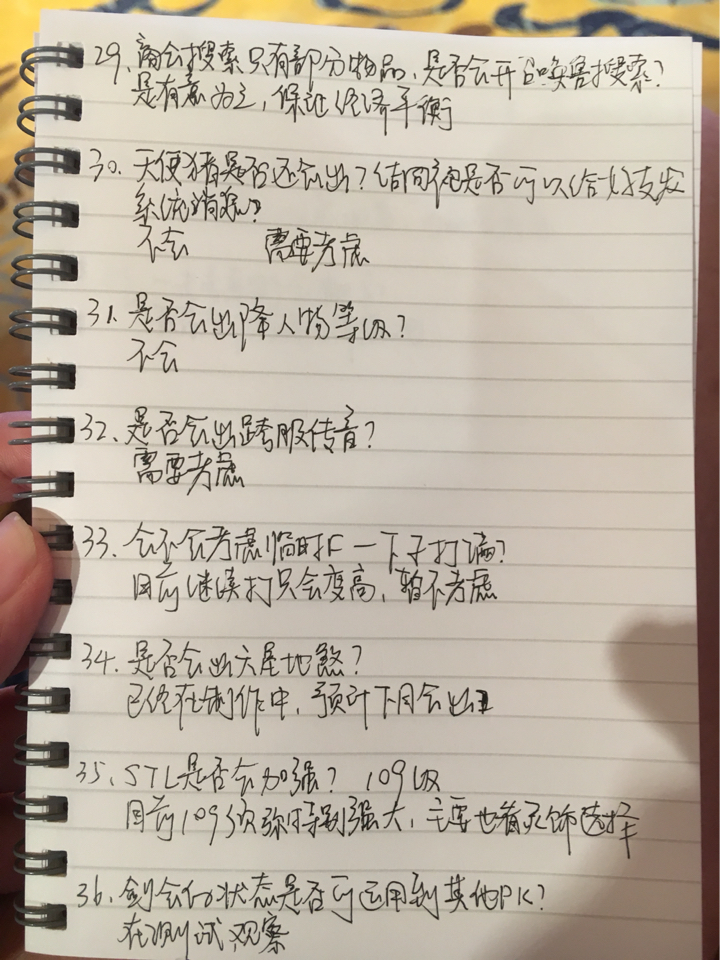 29、商会搜索只有部分物品,是否会开召唤兽搜索?
是有意为之,保证经济平衡
30、天使猪是否还会出?结同袍是否可以给好友发
系统消息?
不会 需要考虑
31、是否会出降人物等级?
不会
32、是否会出跨服传音?
需要考虑
33、会不会考虑临时F一下子打满?
目前继续打只会变高,暂不考虑
34.是否会出六星地煞?
已经在制作中,预计下月会出
35、STL是否会加强? 109级
目前109级特别强大,主要也看灵饰选择
36.剑会的状态是否可运用到其他PK?
在测试观察